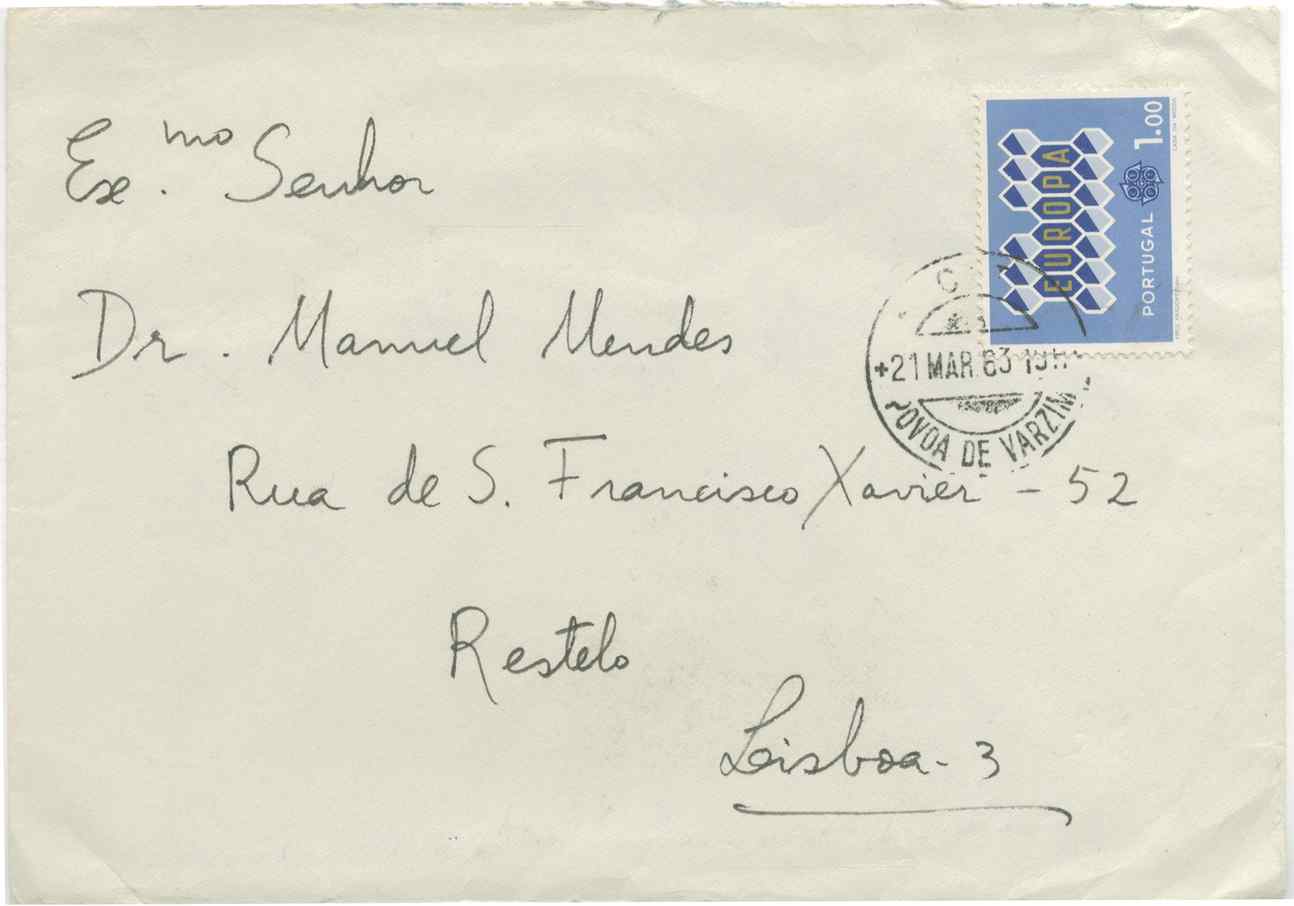 Ex.mo Senhor
Dr. Manuel Mendes
Rua de S. Francisco Xavier - 52
Restelo
Lisboa - 3
EUROPA
PORTUGAL 1.00
+21 MAR. 63
POVOA DE VARZIM